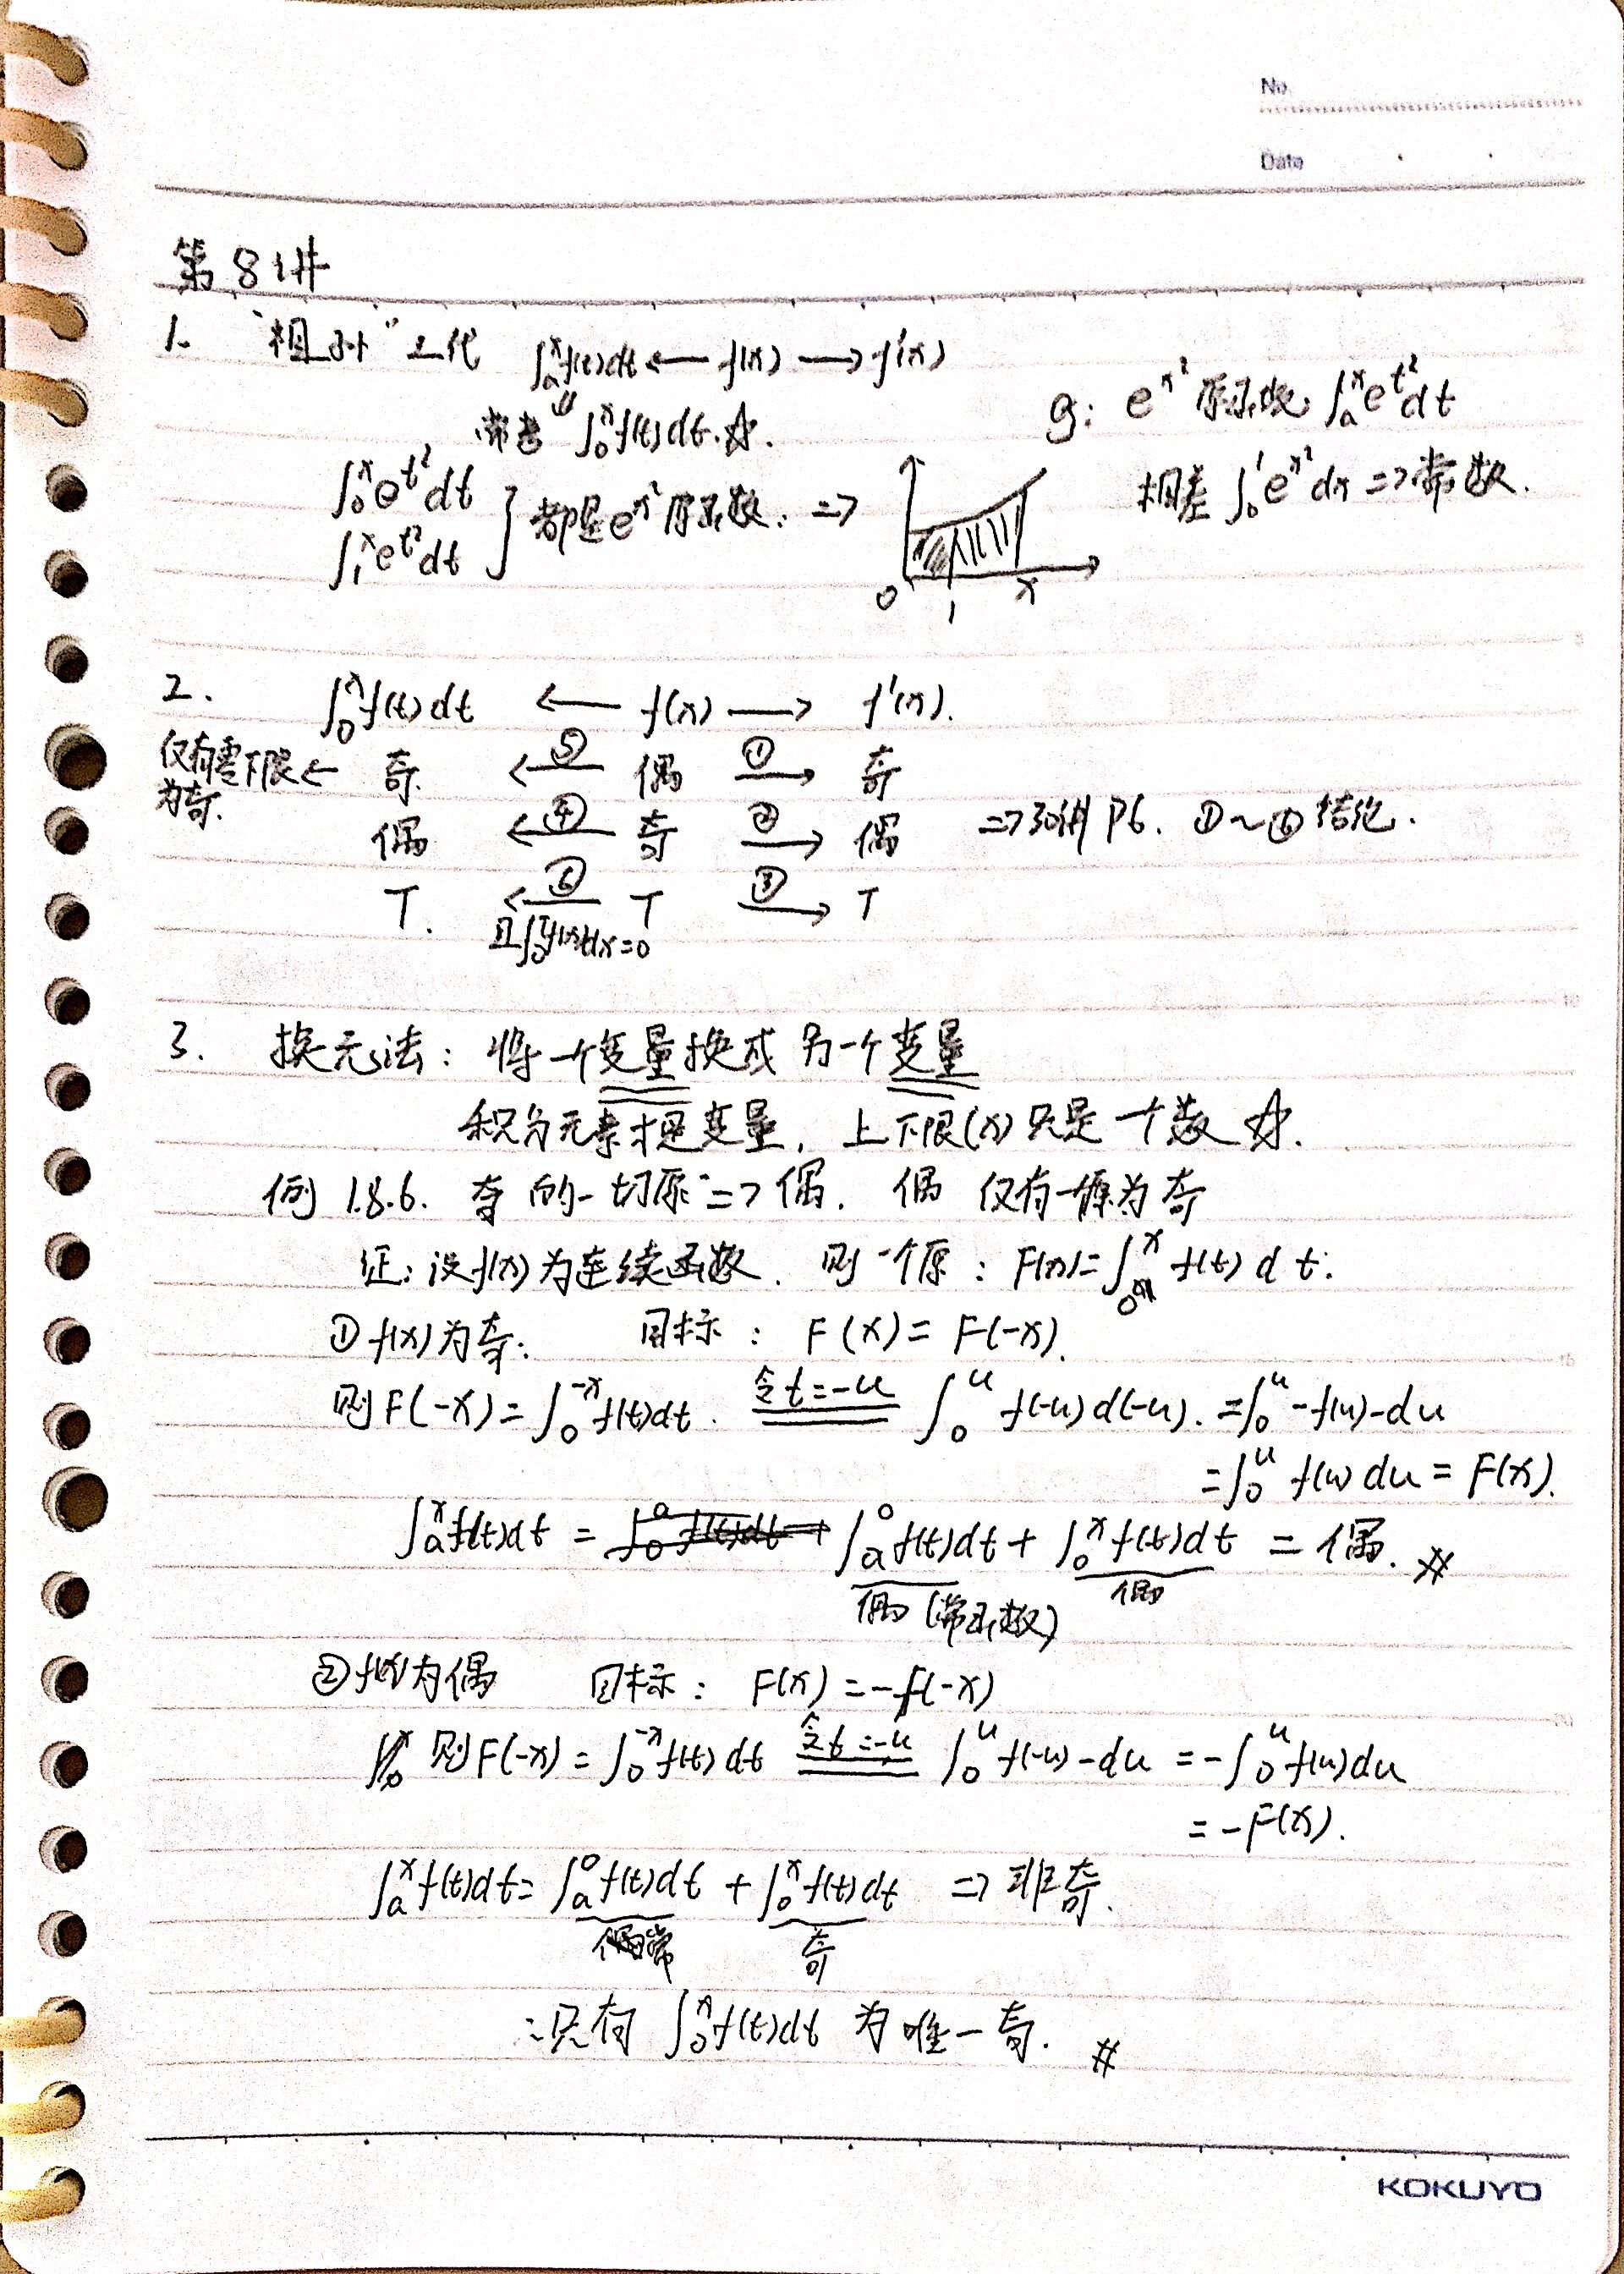 No.
Date
第8讲
1. "祖孙"三代 ∫ₐˣf(t)dt ← f(x) → f'(x)
常考 ∫₀ˣf(t)dt.☆.
g: e^{x²}原函数 ∫ₐˣe^{t²}dt
∫₀ˣe^{t²}dt
∫₁ˣe^{t²}dt } 都是e^{x²}原函数. ⇒
相差 ∫₀¹e^{x²}dx ⇒ 常数.
0 1 x
2. ∫₀ˣf(t)dt ← f(x) → f'(x).
仅有零下限 ← 奇. ←⑤ 偶 ①→ 奇
为奇.
偶 ←④ 奇 ②→ 偶 ⇒30讲 P6. ①~⑥结论.
T. ←⑥ T ③→ T
且∫₀ᵀf(x)dx=0
3. 换元法: 将一个变量换成另一个变量
积分元素才是变量, 上下限(x)只是一个数 ☆.
例 1.8.6. 奇的一切原 ⇒ 偶. 偶 仅有一原为奇
证: 设f(x)为连续函数. 则一个原: F(x)=∫₀ˣf(t)dt.
①f(x)为奇: 目标: F(x)=F(-x).
则F(-x)=∫₀^{-x}f(t)dt. 令t=-u ∫₀ᵘf(-u)d(-u). =∫₀ᵘ-f(u)-du
=∫₀ᵘf(u)du=F(x).
∫ₐˣf(t)dt = ∫ₐ⁰f(t)dt + ∫₀ˣf(t)dt = 偶. #
偶(常函数) 偶
②f(x)为偶 目标: F(x)=-f(-x)
则F(-x)=∫₀^{-x}f(t)dt 令t=-u ∫₀ᵘf(-u)-du =-∫₀ᵘf(u)du
=-F(x).
∫ₐˣf(t)dt=∫ₐ⁰f(t)dt+∫₀ˣf(t)dt ⇒ 非奇.
常 奇
∴只有 ∫₀ˣf(t)dt 为唯一奇. #
KOKUYO